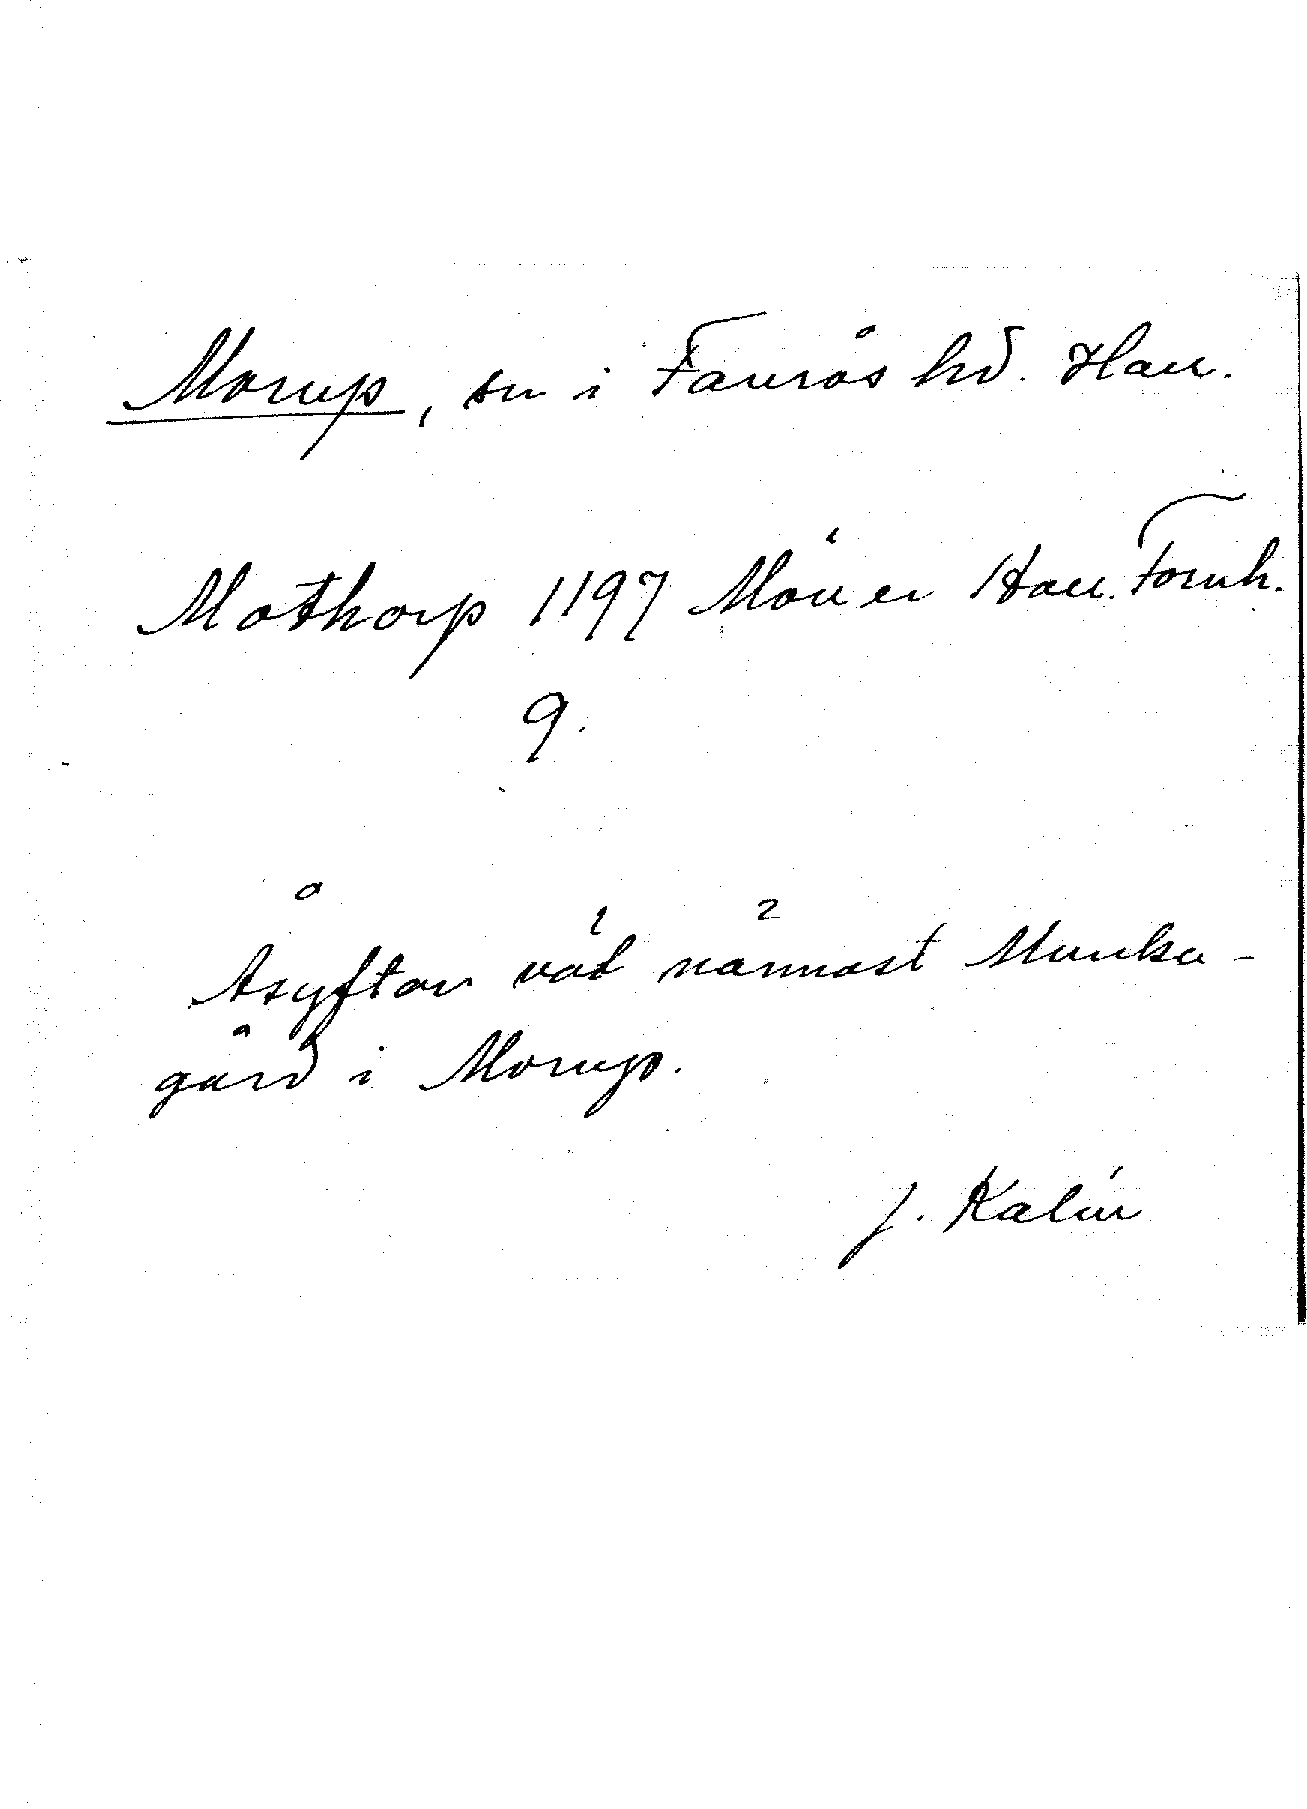 Morup, sn i Faurås hd. Hall.
Mothorp 1197 Möller Hall. Fornh.
9.
Åsyftar väl närmast Munka-
gård i Morup.
J. Kalén